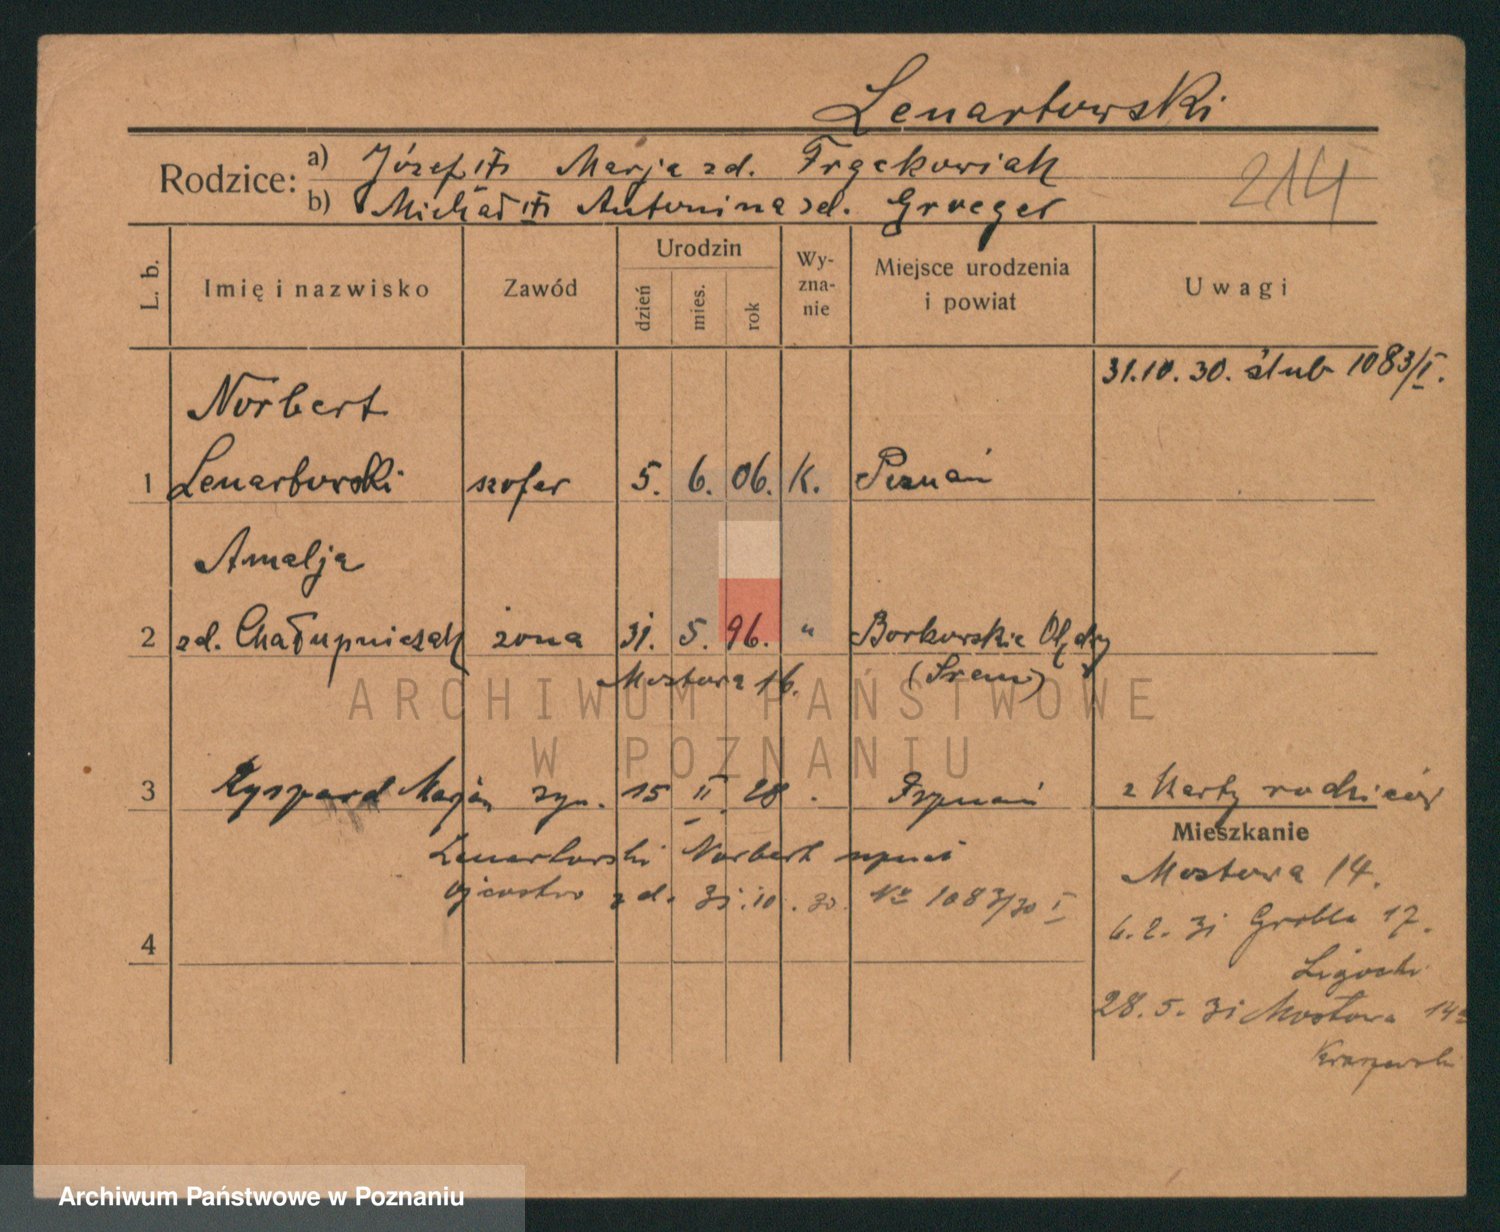 Lenartowski
Rodzice: a) Józef i Marja zd. Frąckowiak
b) Michał i Antonina zd. Groeger
214
L. b. Imię i nazwisko Zawód Urodzin dzień mies. rok Wyznanie Miejsce urodzenia i powiat Uwagi
31.10.30. ślub 1083/I.
Norbert
1 Lenartowski szofer 5. 6. 06. K. Poznań
Amalja
2 zd. Chałupniczak żona 31. 5. 96. " Borkowskie Olędry
Mostowa 16. (Śrem)
3 Ryszard Marjan syn. 15 II 28 . Poznań z karty rodziców
Mieszkanie
Lenartowski Norbert uznał
Mostowa 14.
ojcostwo zd. 31.10.30. No 1083/30 I
6.2.31 Grobla 17.
4
Ligocki
28.5.31 Mostowa 14a
Kraszewski
ARCHIWUM PAŃSTWOWE
W POZNANIU
Archiwum Państwowe w Poznaniu